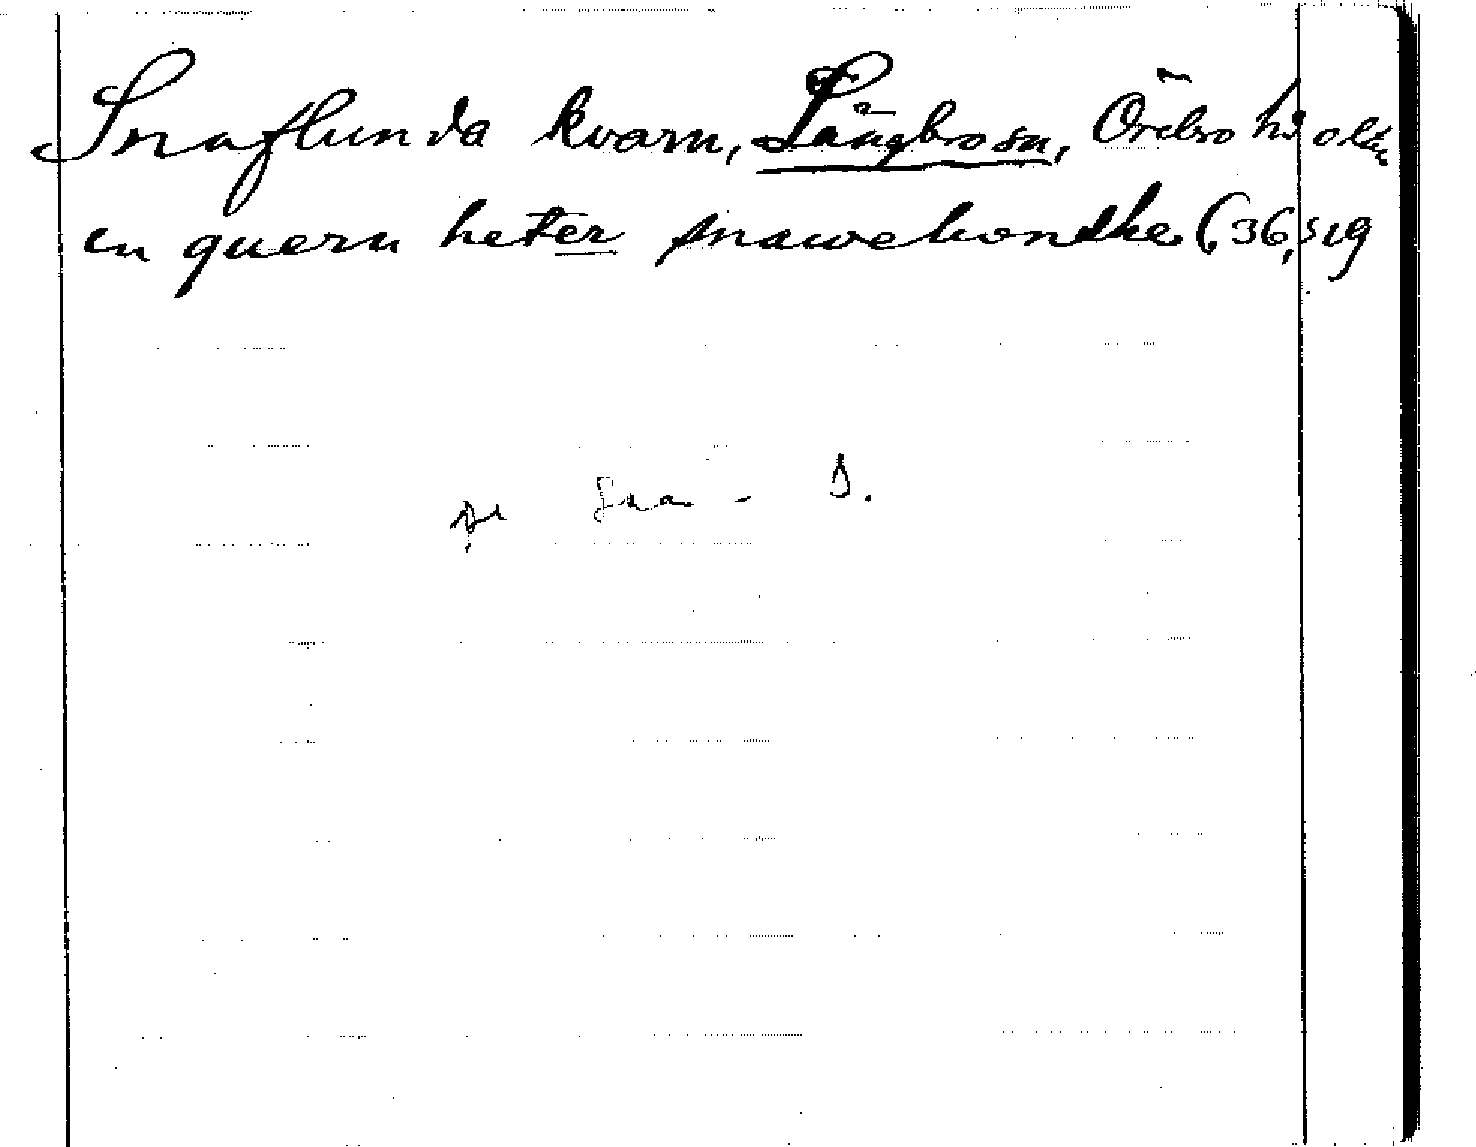 Snaflunda kvarn, Långbro sn, Örebro hd o län
en quern heter snawelonthe (36, s 19
Sna-